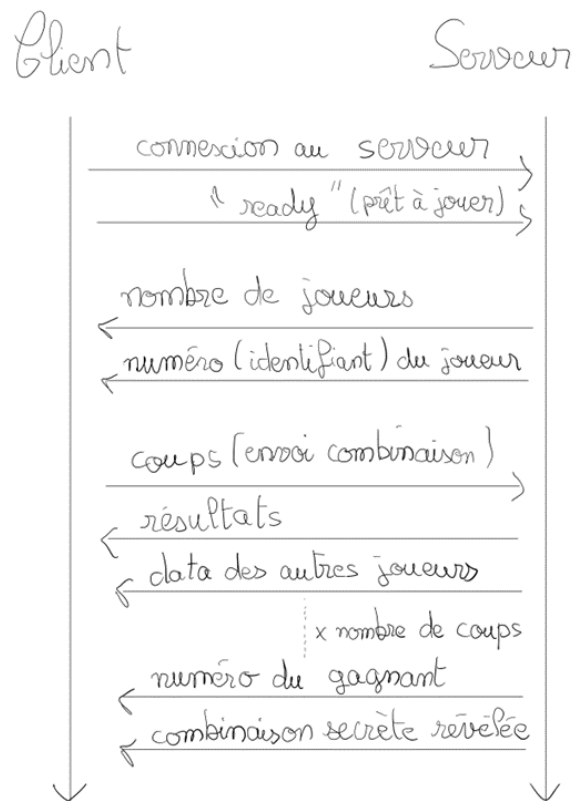 Client Serveur
connexion au serveur
" ready " (prêt à jouer)
nombre de joueurs
numéro (identifiant) du joueur
coups (envoi combinaison)
résultats
data des autres joueurs
x nombre de coups
numéro du gagnant
combinaison secrète révélée